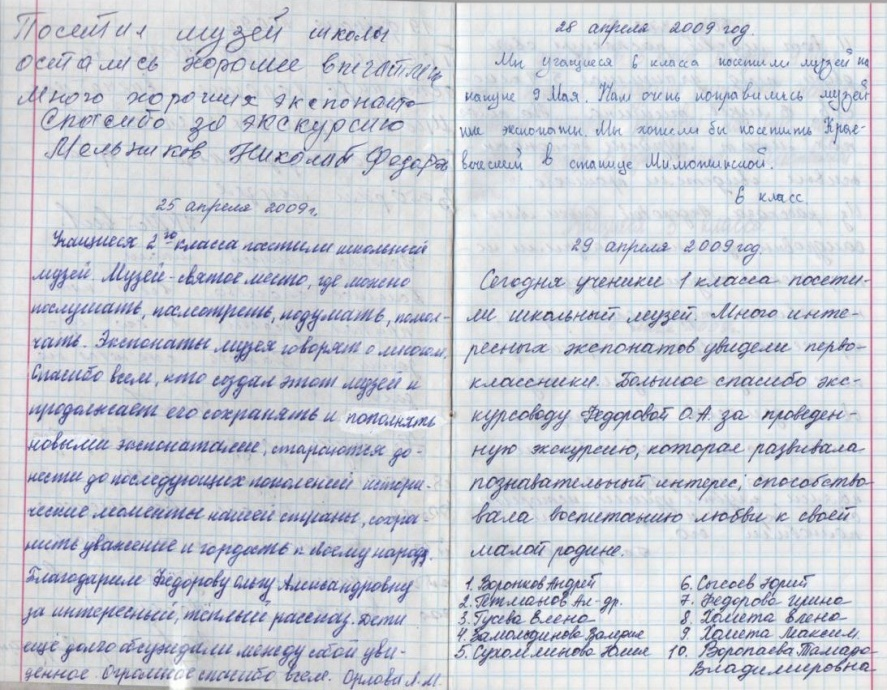 Посетил музей школы
остались хорошие впечатлен
много хороших экспонато
Спасибо за экскурсию
Мельников Николай Федоров
25 апреля 2009г.
Учащиеся 2го класса посетили школьный
музей. Музей - святое место, где можно
послушать, посмотреть, подумать, помол-
чать. Экспонаты музея говорят о многом.
Спасибо всем, кто создал этот музей и
продолжает его сохранять и пополнять
новыми экспонатами, стараются до-
нести до последующих поколений истори-
ческие моменты нашей страны, сохра-
нить уважение и гордость к своему народу.
Благодарим Фёдорову Ольгу Александровну
за интересный, тёплый рассказ. Дети
ещё долго обсуждали между собой уви-
денное. Огромное спасибо всем. Орлова Л.М.
28 апреля 2009 год.
Мы учащиеся 6 класса посетили музей на
кануне 9 Мая. Нам очень понравились музей
ные экспонаты. Мы хотели бы посетить Крае-
в станице Милютинской.
6 класс
29 апреля 2009 год.
Сегодня ученики 1 класса посети-
ли школьный музей. Много инте-
ресных экспонатов увидели перво-
классники. Большое спасибо экс-
курсоводу Федоровой О.А. за проведен-
ную экскурсию, которая развивала
познавательный интерес; способство
вала воспитанию любви к своей
малой родине.
1. Воронков Андрей
2. Гетманов Ал-др.
3. Гусева Елена
4.
5. Сухомлинова Юлия
6. Сысоев Юрий
7. Федорова Ирина
8. Хомета Елена
9 Хомета Максим
10. Воропаева Тамара
Владимировна